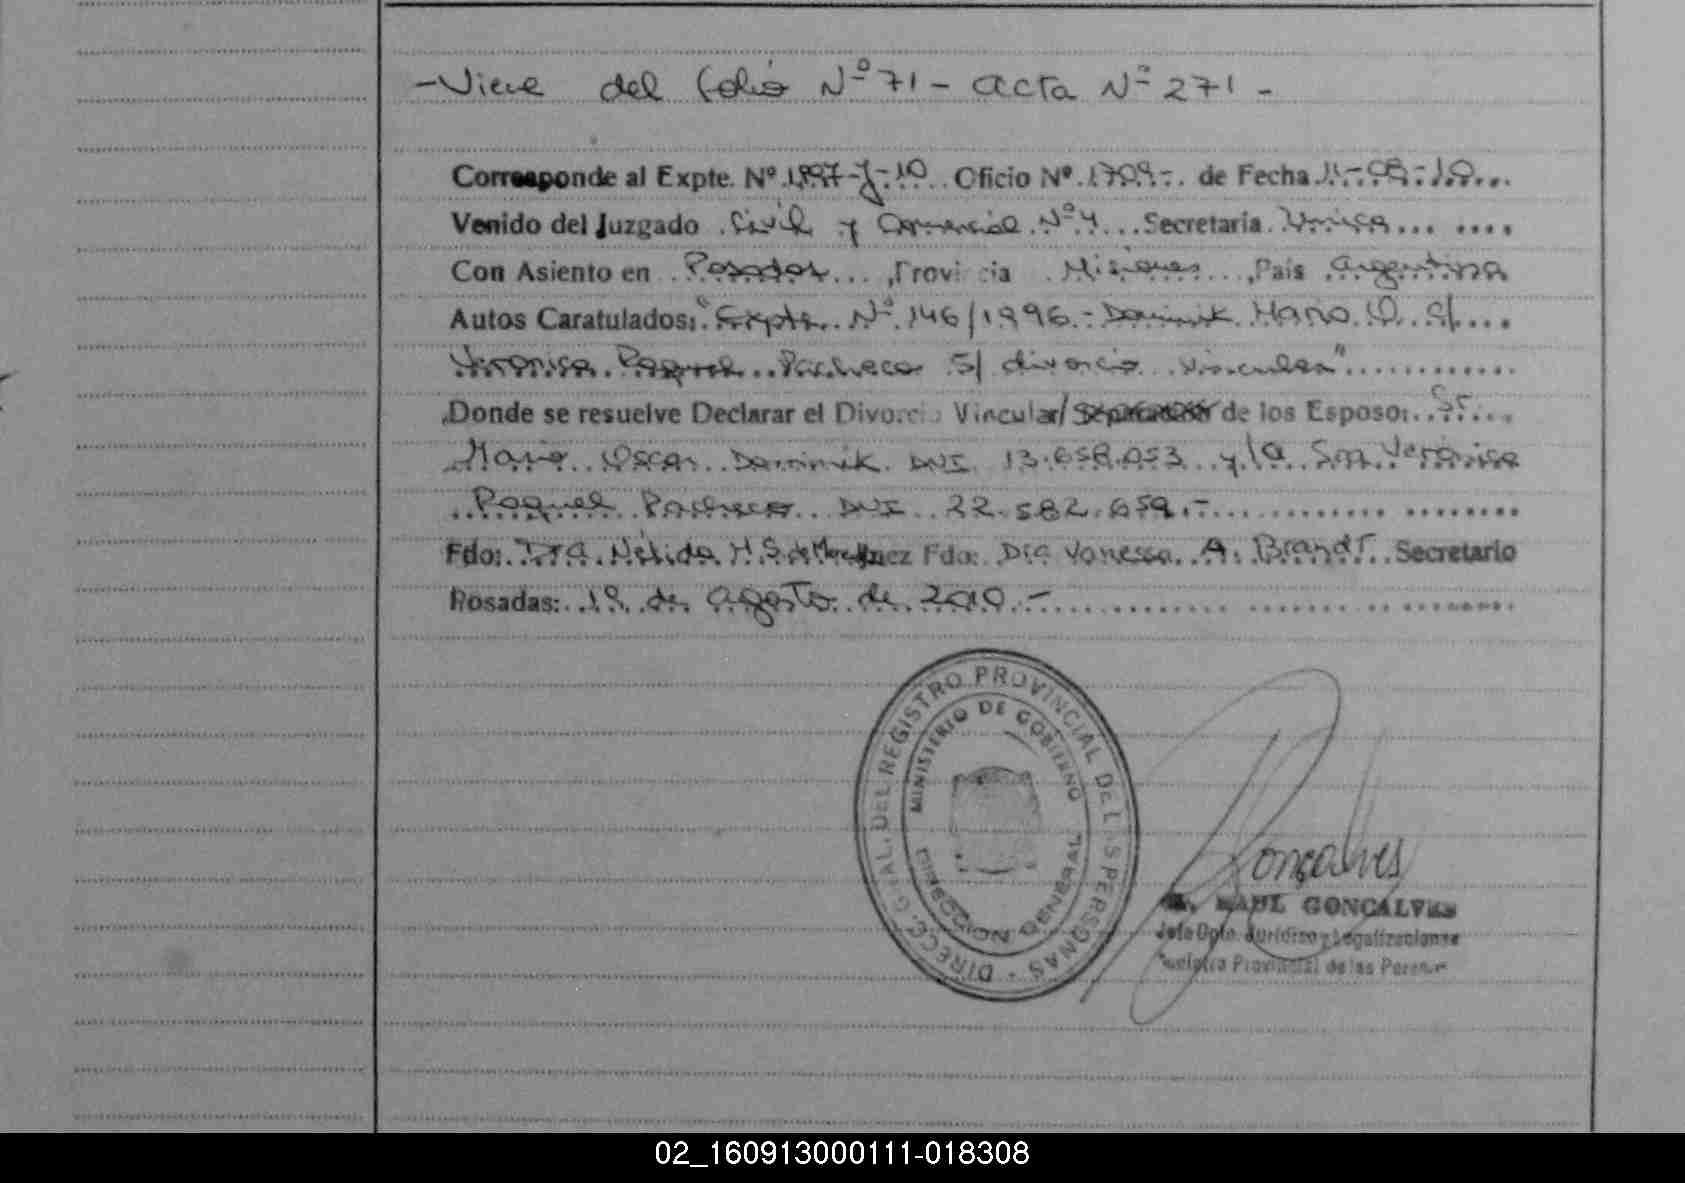 -Viene del folio Nº 71 - acta Nº 271 -
Corresponde al Expte. Nº 1897-J-10 Oficio Nº 1709.- de Fecha 11-08-10
Venido del Juzgado Civil y Comercial Nº 4 Secretaria Unica
Con Asiento en Posadas, Provincia Misiones, País Argentina
Autos Caratulados: "Expte. Nº 146/1996.- Dominik Mario O. c/
Veronica Raquel Pacheco s/ divorcio vincular"
Donde se resuelve Declarar el Divorcio Vincular/ de los Esposos: Sr.
Mario Oscar Dominik DNI 13.658.053 y la Sra Veronica
Raquel Pacheco DNI 22.582.659.-
Fdo: Dra. Nélida M. S. de Juez Fdo: Dra Vanessa A. Brandt Secretario
Posadas: 19 de agosto de 2010.-
DIRECC. GRAL. DEL REGISTRO PROVINCIAL DE LAS PERSONAS
MINISTERIO DE GOBIERNO
DIRECCION GENERAL
Gonçalves
RAUL GONCALVES
Jefe Dpto. Jurídico y Legalizaciones
Registro Provincial de las Personas
02_160913000111-018308